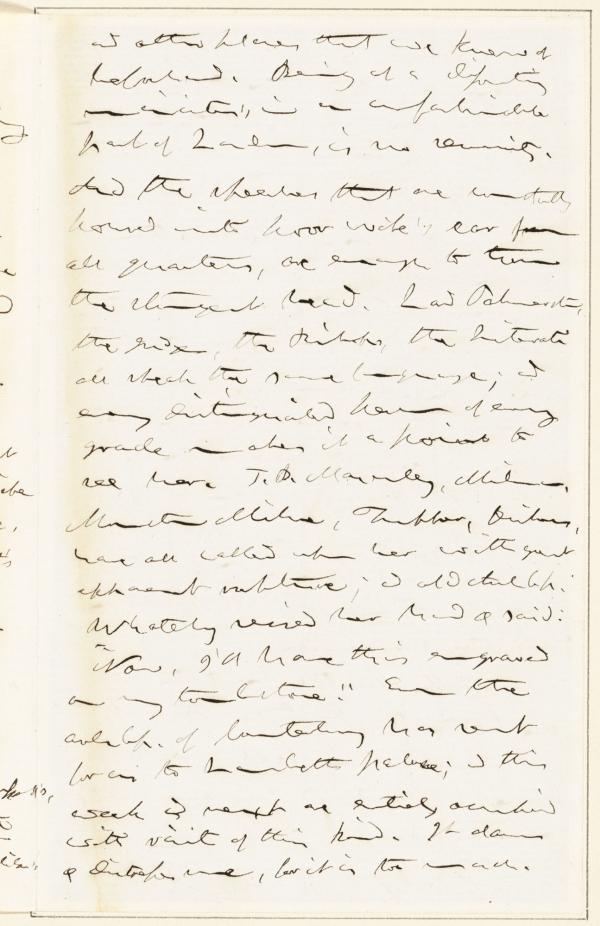 and other places that we knew of
beforehand. Being at a dissenting
minister's, in an unfashionable
part of London, is no security.
And the speeches that are constantly
poured into poor wife's ear from
all quarters, are enough to turn
the strongest head. Lord Palmerston,
the the Bishops, the Literati
all speak the same language; and
every distinguished person of every
grade makes it a point to
see her. T.B. Macaulay, Milman,
Milne, Tupper, Dickens,
have all called upon her with great
apparent ; and old archbp.
Whately seized her hand & said:
"Now, I'll have this engraved
on my tombstone!" Even the
archbp. of Canterbury has sent
for us to Lambeth palace; and this
week & next are entirely occupied
with visits of this kind. It
& me, for it is too much.